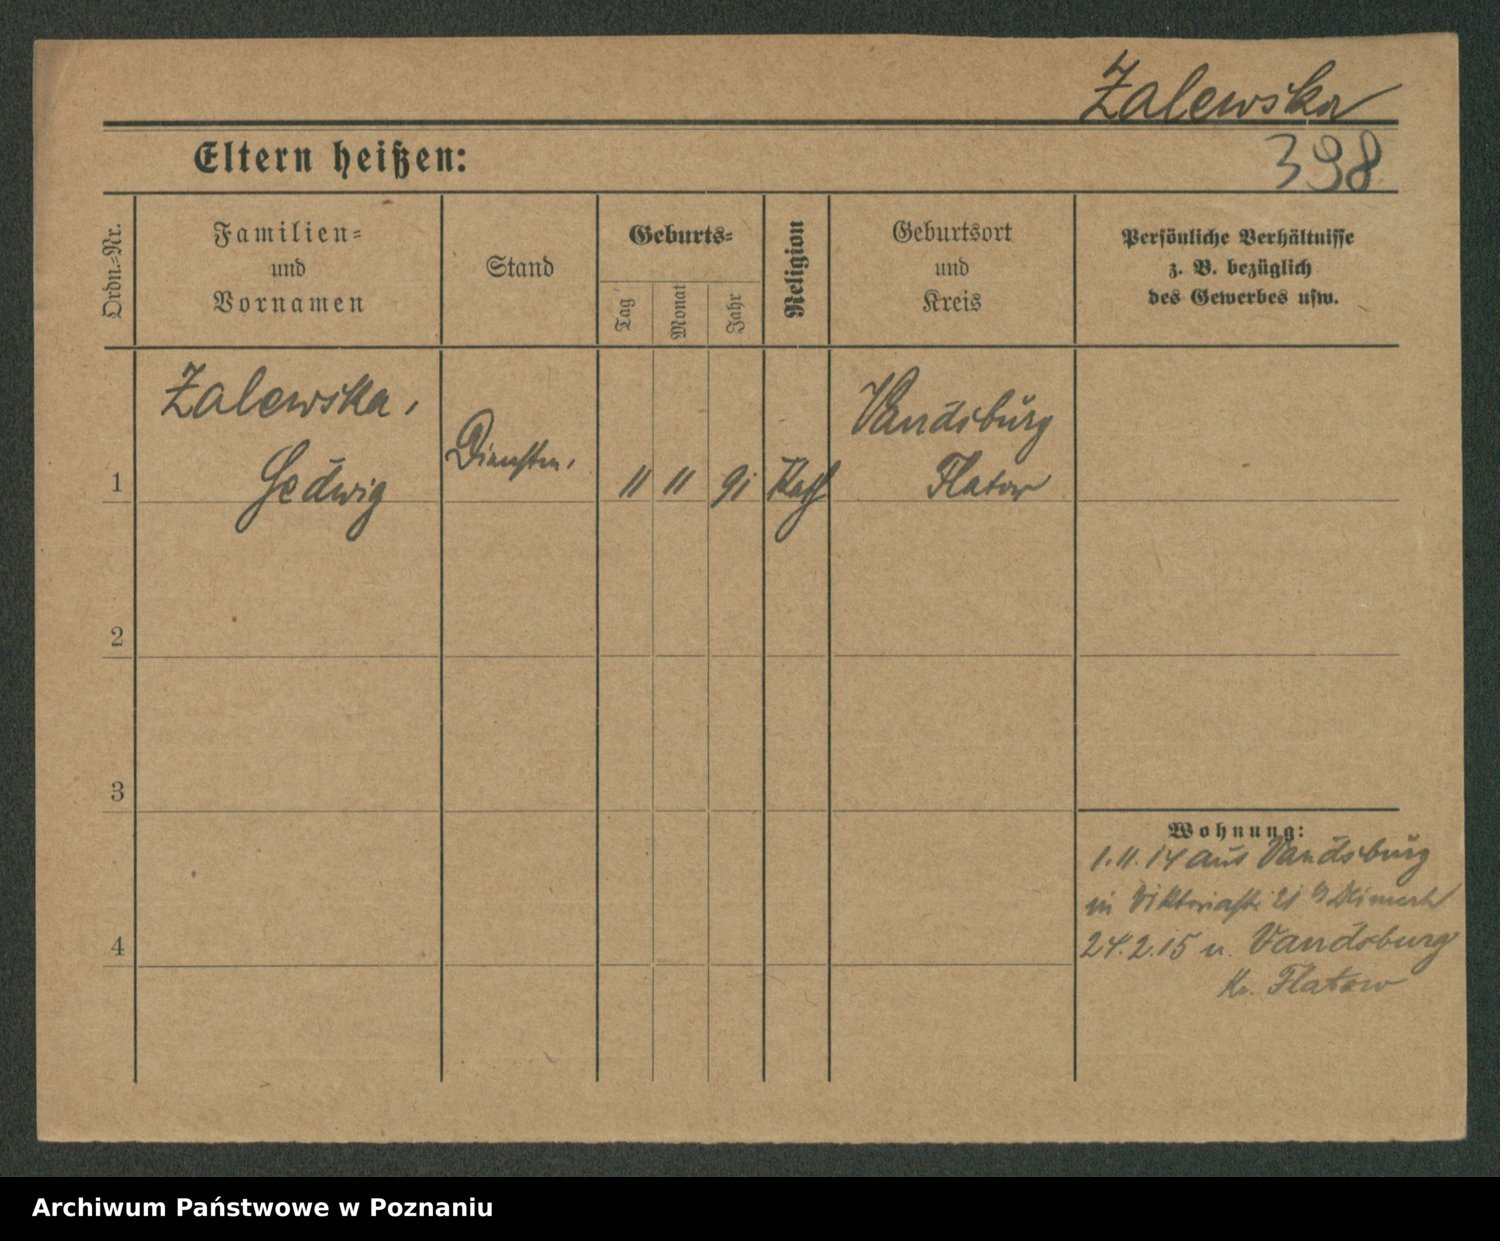 Zalewska
Eltern heißen:
398
Ordn.-Nr.
Familien-
und
Vornamen
Stand
Geburts-
Tag
Monat
Jahr
Religion
Geburtsort
und
Kreis
Persönliche Verhältnisse
z. B. bezüglich
des Gewerbes usw.
Zalewska,
Hedwig
Dienstm.
11 11 91
Kath
Vandsburg
Flatow
1
2
3
4
Wohnung:
1.11.14 aus Vandsburg
in Viktoriastr 21 b
24.2.15 n. Vandsburg
Kr. Flatow
Archiwum Państwowe w Poznaniu